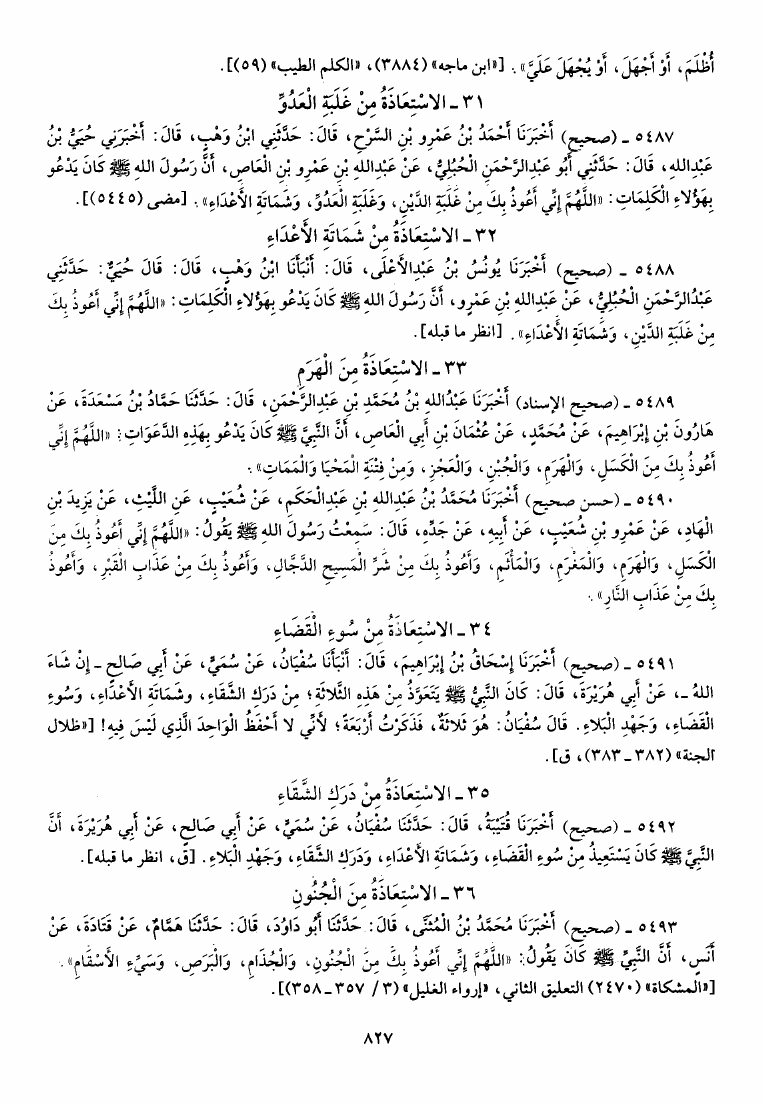 أُظْلَمَ، أَوْ أَجْهَلَ، أَوْ يُجْهَلَ عَلَيَّ». [«ابن ماجه» (٣٨٨٤)، «الكلم الطيب» (٥٩)].
٣١ ـ الاسْتِعَاذَةُ مِنْ غَلَبَةِ الْعَدُوِّ
٥٤٨٧ ـ (صحيح) أَخْبَرَنَا أَحْمَدُ بْنُ عَمْرِو بْنِ السَّرْحِ، قَالَ: حَدَّثَنِي ابْنُ وَهْبٍ، قَالَ: أَخْبَرَنِي حُيَيُّ بْنُ
عَبْدِاللهِ، قَالَ: حَدَّثَنِي أَبُو عَبْدِالرَّحْمَنِ الْحُبُلِيُّ، عَنْ عَبْدِاللهِ بْنِ عَمْرِو بْنِ الْعَاصِ، أَنَّ رَسُولَ اللهِ ﷺ كَانَ يَدْعُو
بِهَؤُلاءِ الْكَلِمَاتِ: «اللَّهُمَّ إِنِّي أَعُوذُ بِكَ مِنْ غَلَبَةِ الدَّيْنِ، وَغَلَبَةِ الْعَدُوِّ، وَشَمَاتَةِ الأَعْدَاءِ». [مضى (٥٤٤٥)].
٣٢ ـ الاسْتِعَاذَةُ مِنْ شَمَاتَةِ الأَعْدَاءِ
٥٤٨٨ ـ (صحيح) أَخْبَرَنَا يُونُسُ بْنُ عَبْدِالأَعْلَى، قَالَ: أَنْبَأَنَا ابْنُ وَهْبٍ، قَالَ: قَالَ حُيَيٌّ: حَدَّثَنِي
عَبْدُالرَّحْمَنِ الْحُبُلِيُّ، عَنْ عَبْدِاللهِ بْنِ عَمْرٍو، أَنَّ رَسُولَ اللهِ ﷺ كَانَ يَدْعُو بِهَؤُلاءِ الْكَلِمَاتِ: «اللَّهُمَّ إِنِّي أَعُوذُ بِكَ
مِنْ غَلَبَةِ الدَّيْنِ، وَشَمَاتَةِ الأَعْدَاءِ». [انظر ما قبله].
٣٣ ـ الاسْتِعَاذَةُ مِنَ الْهَرَمِ
٥٤٨٩ ـ (صحيح الإسناد) أَخْبَرَنَا عَبْدُاللهِ بْنُ مُحَمَّدِ بْنِ عَبْدِالرَّحْمَنِ، قَالَ: حَدَّثَنَا حَمَّادُ بْنُ مَسْعَدَةَ، عَنْ
هَارُونَ بْنِ إِبْرَاهِيمَ، عَنْ مُحَمَّدٍ، عَنْ عُثْمَانَ بْنِ أَبِي الْعَاصِ، أَنَّ النَّبِيَّ ﷺ كَانَ يَدْعُو بِهَذِهِ الدَّعَوَاتِ: «اللَّهُمَّ إِنِّي
أَعُوذُ بِكَ مِنَ الْكَسَلِ، وَالْهَرَمِ، وَالْجُبْنِ، وَالْعَجْزِ، وَمِنْ فِتْنَةِ الْمَحْيَا وَالْمَمَاتِ».
٥٤٩٠ ـ (حسن صحيح) أَخْبَرَنَا مُحَمَّدُ بْنُ عَبْدِاللهِ بْنِ عَبْدِالْحَكَمِ، عَنْ شُعَيْبٍ، عَنِ اللَّيْثِ، عَنْ يَزِيدَ بْنِ
الْهَادِ، عَنْ عَمْرِو بْنِ شُعَيْبٍ، عَنْ أَبِيهِ، عَنْ جَدِّهِ، قَالَ: سَمِعْتُ رَسُولَ اللهِ ﷺ يَقُولُ: «اللَّهُمَّ إِنِّي أَعُوذُ بِكَ مِنَ
الْكَسَلِ، وَالْهَرَمِ، وَالْمَغْرَمِ، وَالْمَأْثَمِ، وَأَعُوذُ بِكَ مِنْ شَرِّ الْمَسِيحِ الدَّجَّالِ، وَأَعُوذُ بِكَ مِنْ عَذَابِ الْقَبْرِ، وَأَعُوذُ
بِكَ مِنْ عَذَابِ النَّارِ».
٣٤ ـ الاسْتِعَاذَةُ مِنْ سُوءِ الْقَضَاءِ
٥٤٩١ ـ (صحيح) أَخْبَرَنَا إِسْحَاقُ بْنُ إِبْرَاهِيمَ، قَالَ: أَنْبَأَنَا سُفْيَانُ، عَنْ سُمَيٍّ، عَنْ أَبِي صَالِحٍ ـ إِنْ شَاءَ
اللهُ ـ، عَنْ أَبِي هُرَيْرَةَ، قَالَ: كَانَ النَّبِيُّ ﷺ يَتَعَوَّذُ مِنْ هَذِهِ الثَّلاثَةِ؛ مِنْ دَرَكِ الشَّقَاءِ، وشَمَاتَةِ الأَعْدَاءِ، وَسُوءِ
الْقَضَاءِ، وَجَهْدِ الْبَلاءِ. قَالَ سُفْيَانُ: هُوَ ثَلاثَةٌ، فَذَكَرْتُ أَرْبَعَةً؛ لأَنِّي لا أَحْفَظُ الْوَاحِدَ الَّذِي لَيْسَ فِيهِ! [«ظلال
الجنة» (٣٨٢ ـ ٣٨٣)، ق].
٣٥ ـ الاسْتِعَاذَةُ مِنْ دَرَكِ الشَّقَاءِ
٥٤٩٢ ـ (صحيح) أَخْبَرَنَا قُتَيْبَةُ، قَالَ: حَدَّثَنَا سُفْيَانُ، عَنْ سُمَيٍّ، عَنْ أَبِي صَالِحٍ، عَنْ أَبِي هُرَيْرَةَ، أَنَّ
النَّبِيَّ ﷺ كَانَ يَسْتَعِيذُ مِنْ سُوءِ الْقَضَاءِ، وَشَمَاتَةِ الأَعْدَاءِ، وَدَرَكِ الشَّقَاءِ، وَجَهْدِ الْبَلاءِ. [ق، انظر ما قبله].
٣٦ ـ الاسْتِعَاذَةُ مِنَ الْجُنُونِ
٥٤٩٣ ـ (صحيح) أَخْبَرَنَا مُحَمَّدُ بْنُ الْمُثَنَّى، قَالَ: حَدَّثَنَا أَبُو دَاوُدَ، قَالَ: حَدَّثَنَا هَمَّامٌ، عَنْ قَتَادَةَ، عَنْ
أَنَسٍ، أَنَّ النَّبِيَّ ﷺ كَانَ يَقُولُ: «اللَّهُمَّ إِنِّي أَعُوذُ بِكَ مِنَ الْجُنُونِ، وَالْجُذَامِ، وَالْبَرَصِ، وَسَيِّءِ الأَسْقَامِ».
[«المشكاة» (٢٤٧٠) التعليق الثاني، «إرواء الغليل» (٣/ ٣٥٧ ـ ٣٥٨)].
٨٢٧